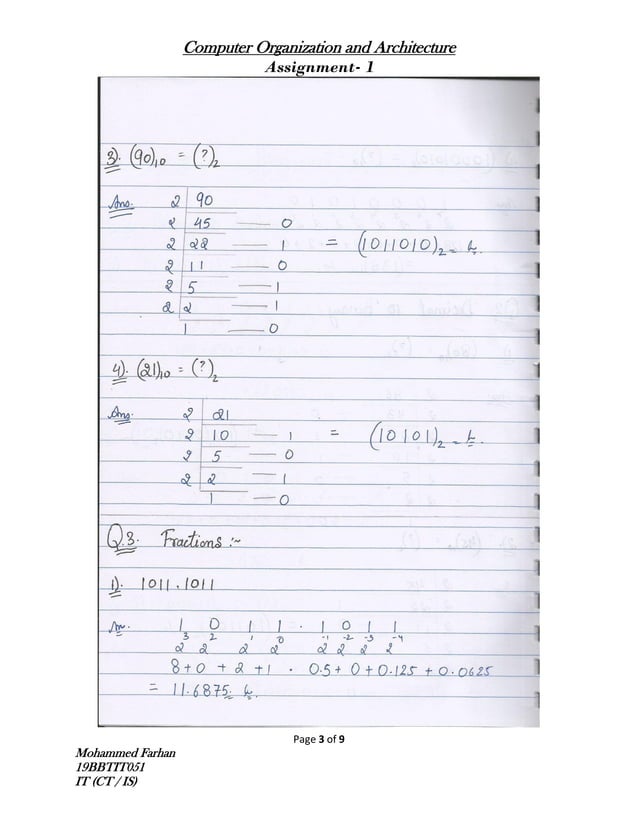 Computer Organization and Architecture
Assignment- 1
3). (90)10 = (?)2
Ans. 2 90
2 45 — 0
2 22 — 1 = (1011010)2
2 11 — 0
2 5 — 1
2 2 — 1
1 — 0
4). (21)10 = (?)2
Ans. 2 21
2 10 — 1 = (10101)2
2 5 — 0
2 2 — 1
1 — 0
Q.3. Fractions :~
1). 1011.1011
1 0 1 1 . 1 0 1 1
3 2 1 0 -1 -2 -3 -4
2 2 2 2 2 2 2 2
8+0 + 2 +1 . 0.5 + 0 + 0.125 + 0.0625
= 11.6875
Page 3 of 9
Mohammed Farhan
19BBTIT051
IT (CT / IS)